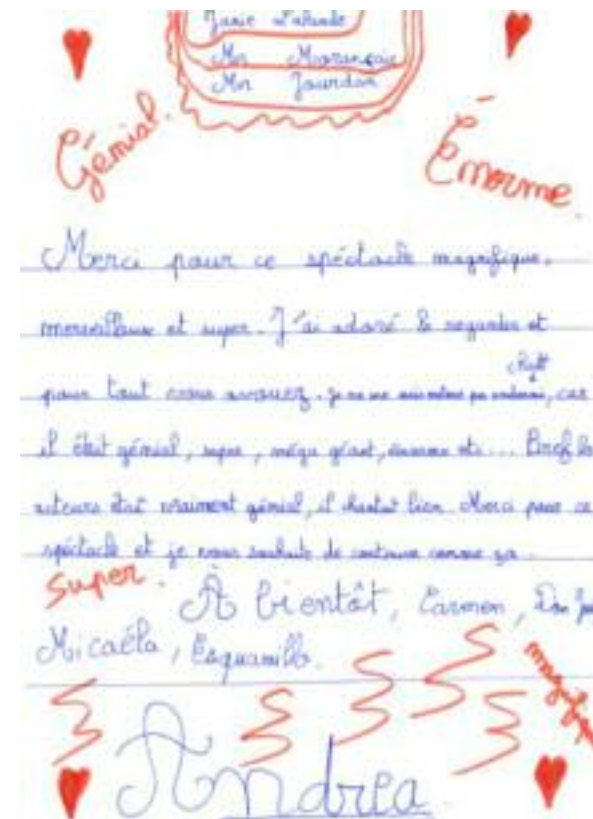 Janie Lalande
Mr Marançais
Mr Jourdan
Génial.
Énorme.
Merci pour ce spéctacle magnifique,
merveilleuse et super. J'ai adoré le regarder et
chutt
pour tout vous avouez. je ne me suis même pas endormi, car
il était génial, super, méga géant, énorme etc... Bref les
acteurs était vraiment génial, il chantait bien. Merci pour ce
spéctacle et je vous souhaite de continuer comme ça.
Super.
À bientôt, Carmen, Don
Micaëla, Esquamillo.
Andrea.